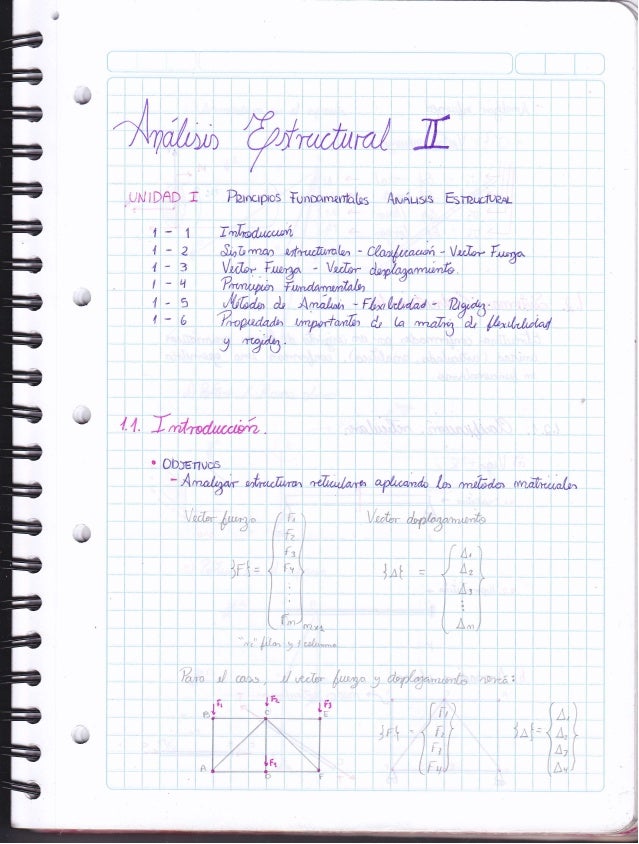 Análisis Estructural II
UNIDAD I Principios Fundamentales Análisis Estructural
1 - 1 Introducción
1 - 2 Sistemas estructurales - Clasificación - Vector Fuerza
1 - 3 Vector Fuerza - Vector desplazamiento.
1 - 4 Principios Fundamentales
1 - 5 Métodos de Análisis - Flexibilidad - Rigidez.
1 - 6 Propiedades importantes de la matriz de flexibilidad
y rigidez.
1.1. Introducción.
• Objetivos
- Analizar estructuras reticulares aplicando los métodos matriciales
Vector fuerza Vector desplazamiento
{F} = { F1 F2 F3 F4 ⋮ Fm } mx1 {Δ} = { Δ1 Δ2 Δ3 ⋮ Δm }
"m" filas y 1 columna
Para el caso, el vector fuerza y desplazamiento será:
F1 F2 F3
B C E
F4
A D F
{F} = { F1 F2 F3 F4 } {Δ} = { Δ1 Δ2 Δ3 Δ4 }